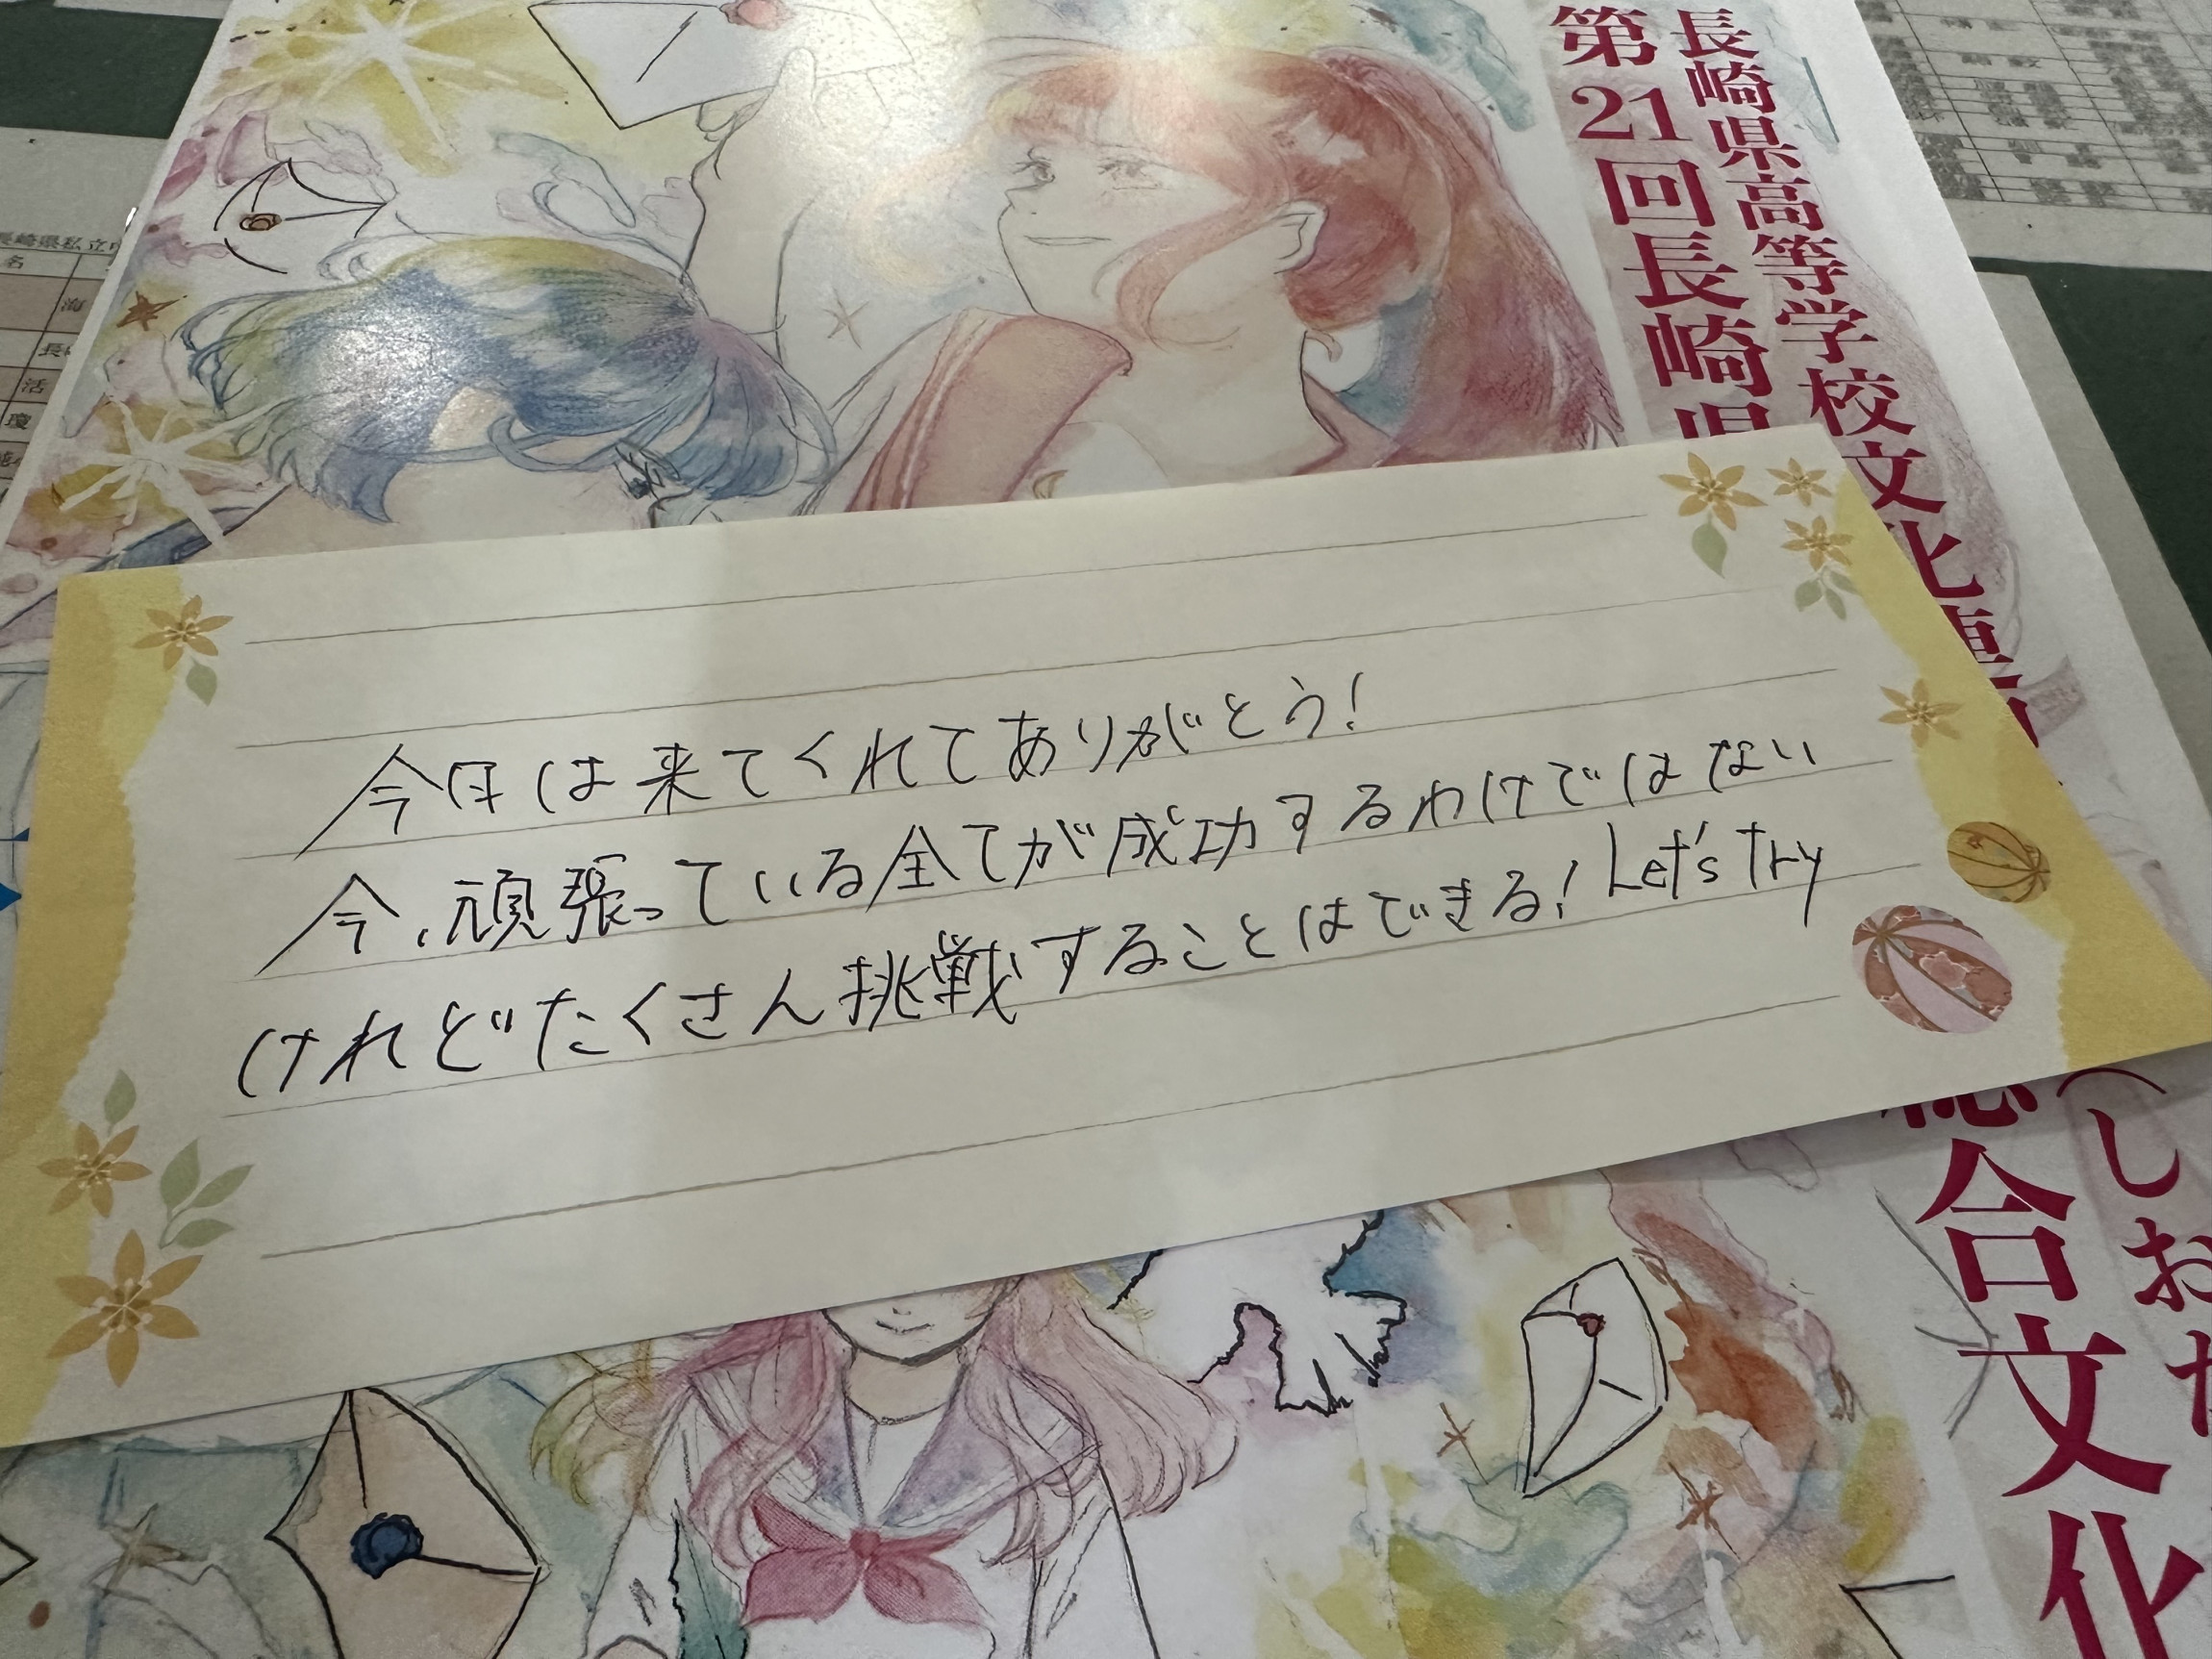 長崎県高等学校文化連
第21回長崎県
総合文化
(しおか
長崎県私立中
名
海
活
今日は来てくれてありがとう!
今、頑張っている全てが成功するわけではない
けれどたくさん挑戦することはできる! Let's try